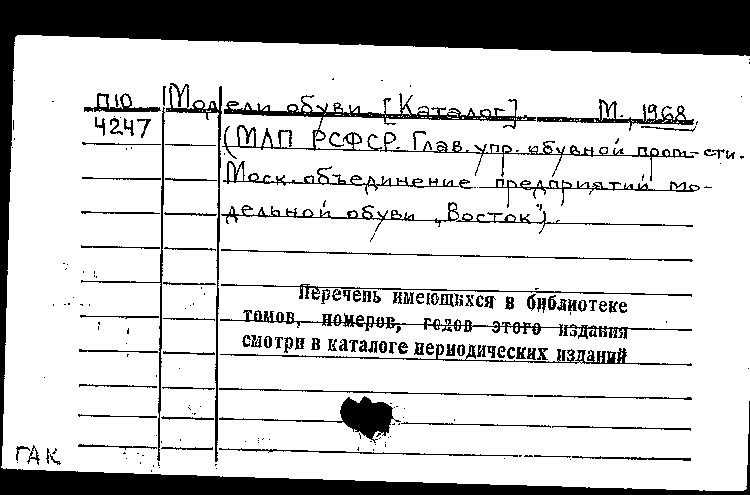 П10 Модели обуви. [Каталог]. М., 1968,
4247 (МЛП РСФСР. Глав. упр. обувной пром-сти.
Моск. объединение предприятий мо-
дельной обуви „Восток").
Перечень имеющихся в библиотеке
томов, номеров, годов этого издания
смотри в каталоге периодических изданий
ГАК